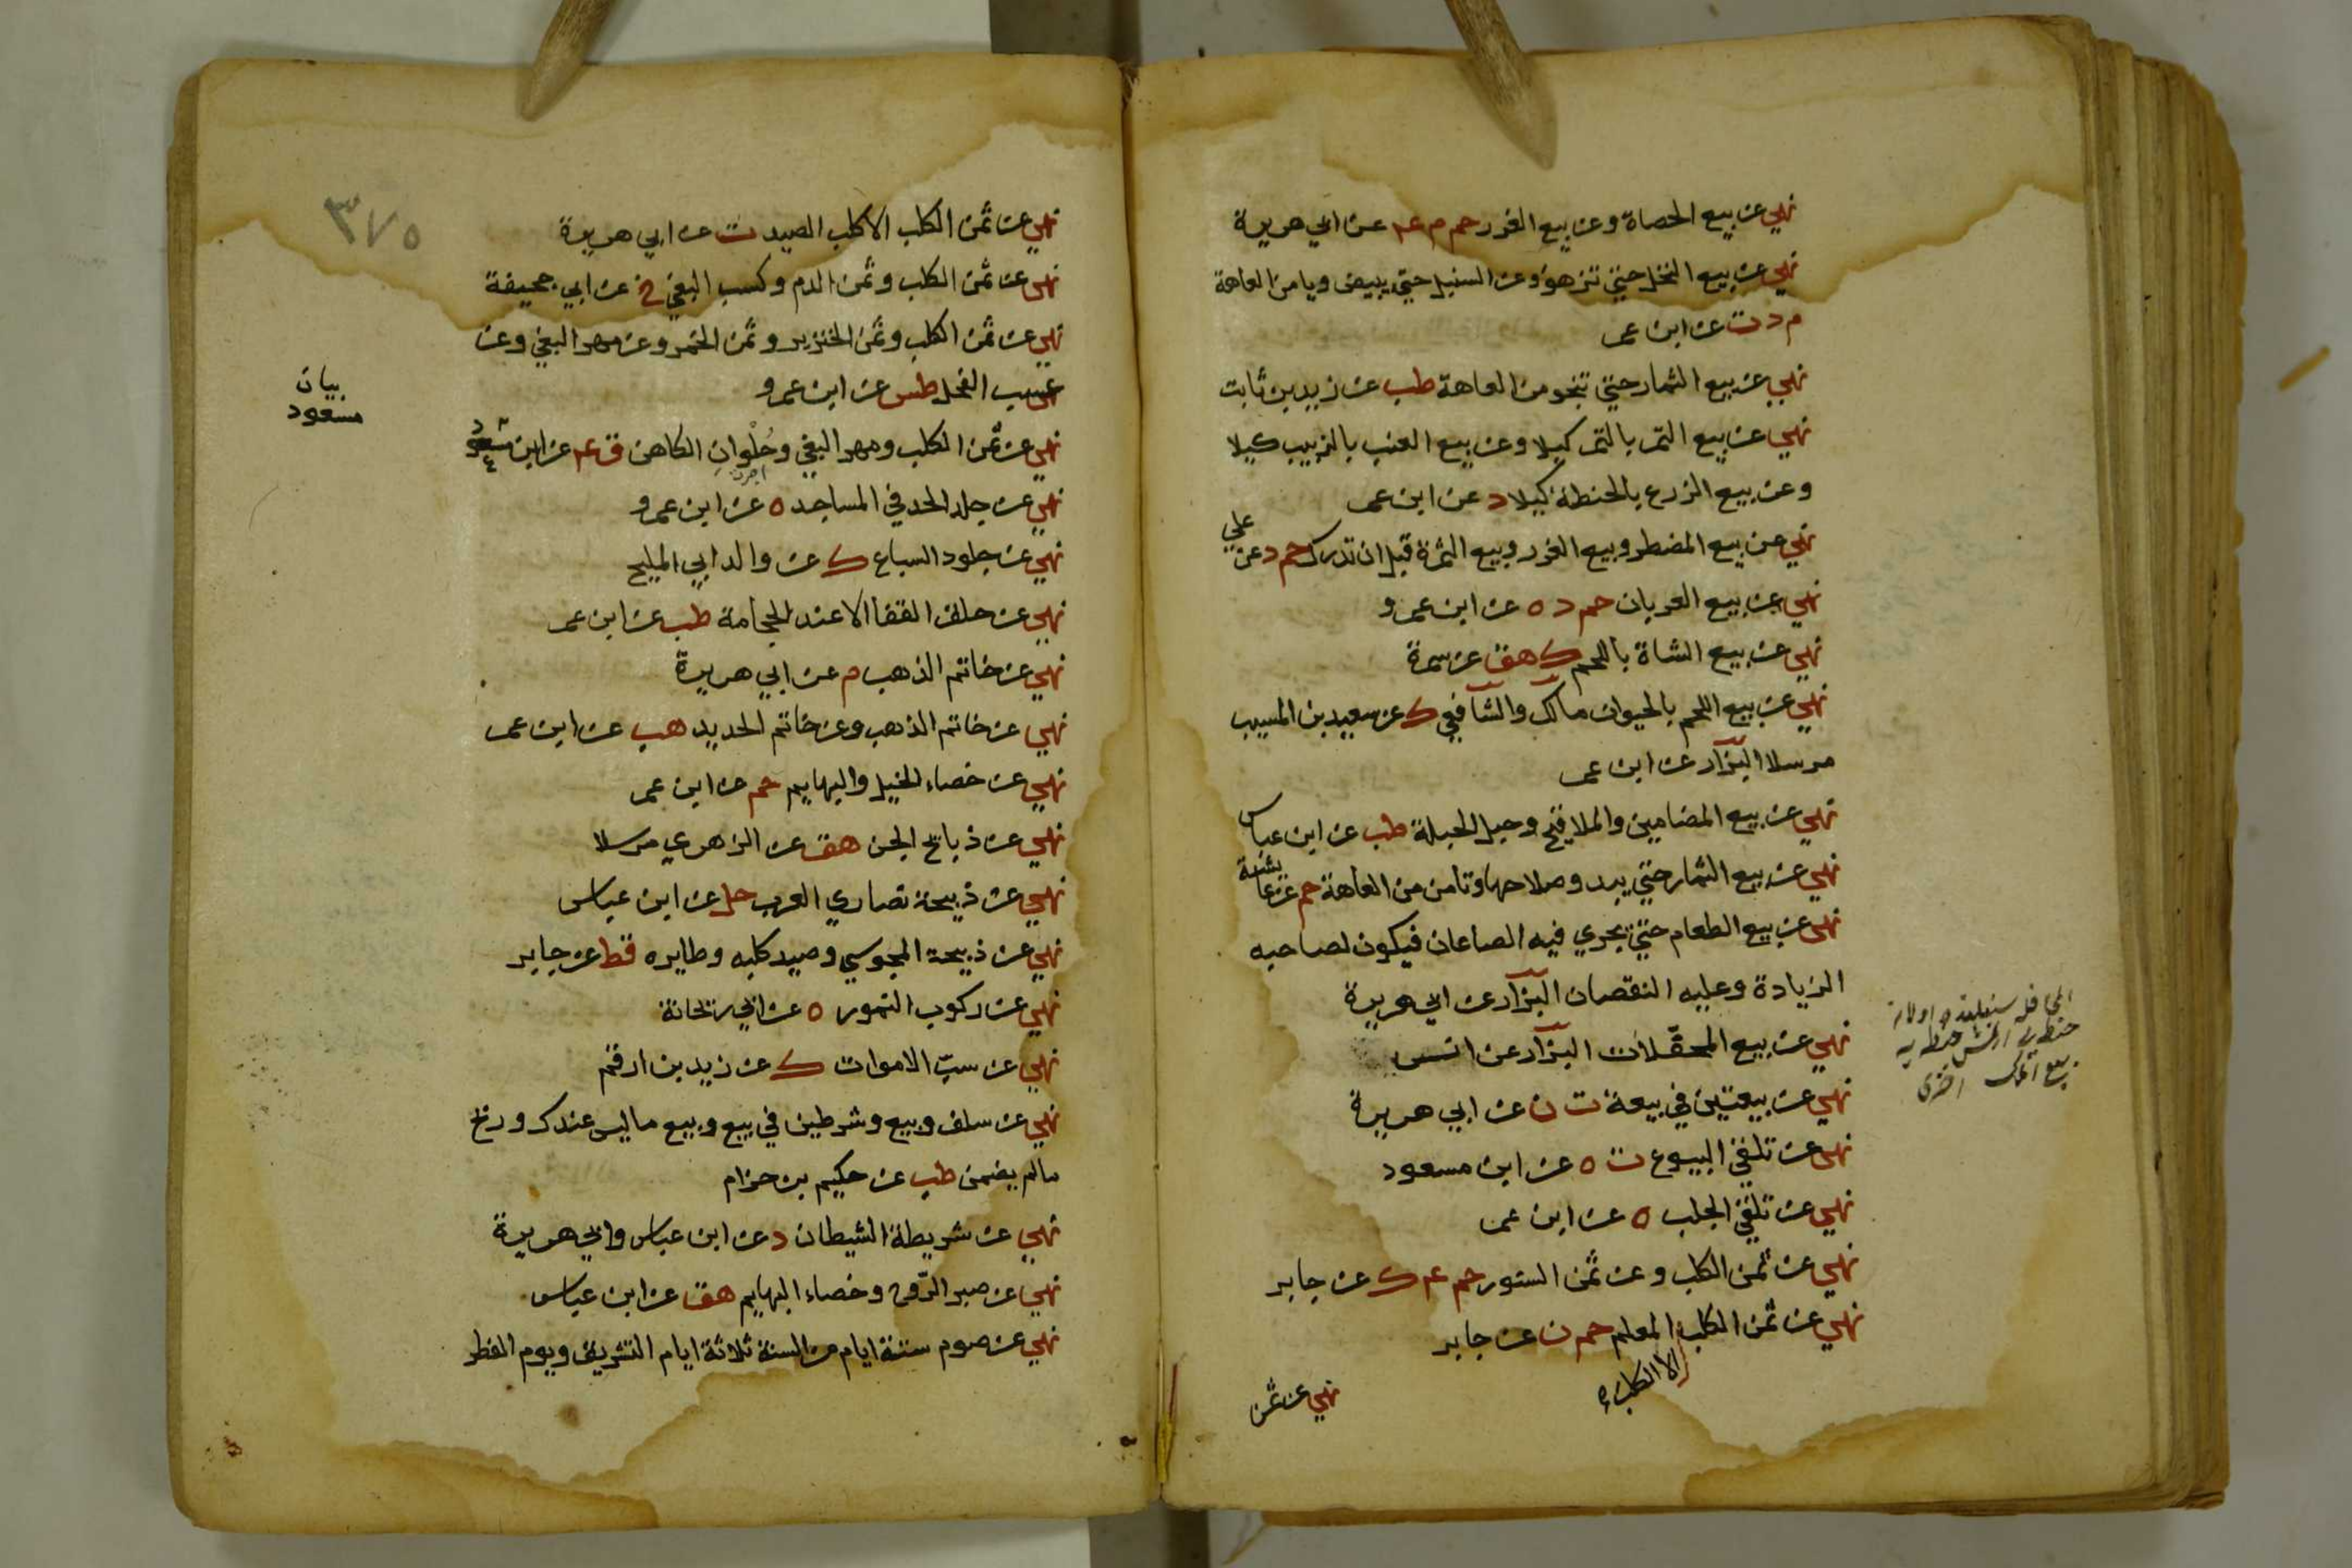 نهي عن بيع الحصاة وعن بيع الغرر حم م عه عن ابي هريرة
نهي عن بيع النخل حتي تزهو وعن السنبل حتي يبيض ويامن العاهة
م د ت عن ابن عمر
نهي عن بيع الثمار حتي تنجو من العاهة طب عن زيد بن ثابت
نهي عن بيع التمر بالتمر كيلا وعن بيع العنب بالزبيب كيلا
وعن بيع الزرع بالحنطة كيلا د عن ابن عمر
نهي عن بيع المضطر وبيع الغرر وبيع الثمرة قبل ان تدرك حم د عن علي
نهي عن بيع العربان حم د ه عن ابن عمرو
نهي عن بيع الشاة باللحم ك هق عن سمرة
نهي عن بيع اللحم بالحيوان مالك والشافعي ك عن سعيد بن المسيب
مرسلا البزار عن ابن عمر
نهي عن بيع المضامين والملاقيح وحبل الحبلة طب عن ابن عباس
نهي عن بيع الثمار حتي يبدو صلاحها وتامن من العاهة حم عن عائشة
نهي عن بيع الطعام حتي يجري فيه الصاعان فيكون لصاحبه
الزيادة وعليه النقصان البزار عن ابي هريرة
نهي عن بيع المحفلات البزار عن انس
نهي عن بيعتين في بيعة ت ن عن ابي هريرة
نهي عن تلقي البيوع ت ه عن ابن مسعود
نهي عن تلقي الجلب ه عن ابن عمر
نهي عن ثمن الكلب وعن ثمن السنور حم عه ك عن جابر
نهي عن ثمن الكلب المعلم حم ن عن جابر
الا الكلب
نهي عن ثمن
٣٧٥
نهي عن ثمن الكلب الا كلب الصيد ت عن ابي هريرة
نهي عن ثمن الكلب وثمن الدم وكسب البغي خ عن ابي جحيفة
نهي عن ثمن الكلب وثمن الخنزير وثمن الخمر وعن مهر البغي وعن
عسيب الفحل طس عن ابن عمرو
بيان
مسعود
نهي عن ثمن الكلب ومهر البغي وحُلْوانِ الكاهن ق عه عن ابن مسعود
اجرت
نهي عن جلد الحد في المساجد ه عن ابن عمرو
نهي عن جلود السباع ك عن والد ابي المليح
نهي عن حلق القفا الا عند الحجامة طب عن ابن عمر
نهي عن خاتم الذهب م عن ابي هريرة
نهي عن خاتم الذهب وعن خاتم الحديد هب عن ابن عمر
نهي عن خصاء الخيل والبهايم حم عن ابن عمر
نهي عن ذبائح الجن هق عن الزهري مرسلا
نهي عن ذبيحة نصاري العرب حل عن ابن عباس
نهي عن ذبيحة المجوسي وصيد كلبه وطايره قط عن جابر
نهي عن ركوب النمور ه عن ابي ريحانة
نهي عن سبّ الاموات ك عن زيد بن ارقم
نهي عن سلف وبيع وشرطين في بيع وبيع ما ليس عندك وربح
مالم يضمن طب عن حكيم بن حزام
نهي عن شريطة الشيطان د عن ابن عباس وابي هريرة
نهي عن صبر الرّوح وخصاء البهايم هق عن ابن عباس
نهي عن صوم ستة ايام من السنة ثلاثة ايام التشريق ويوم الفطر